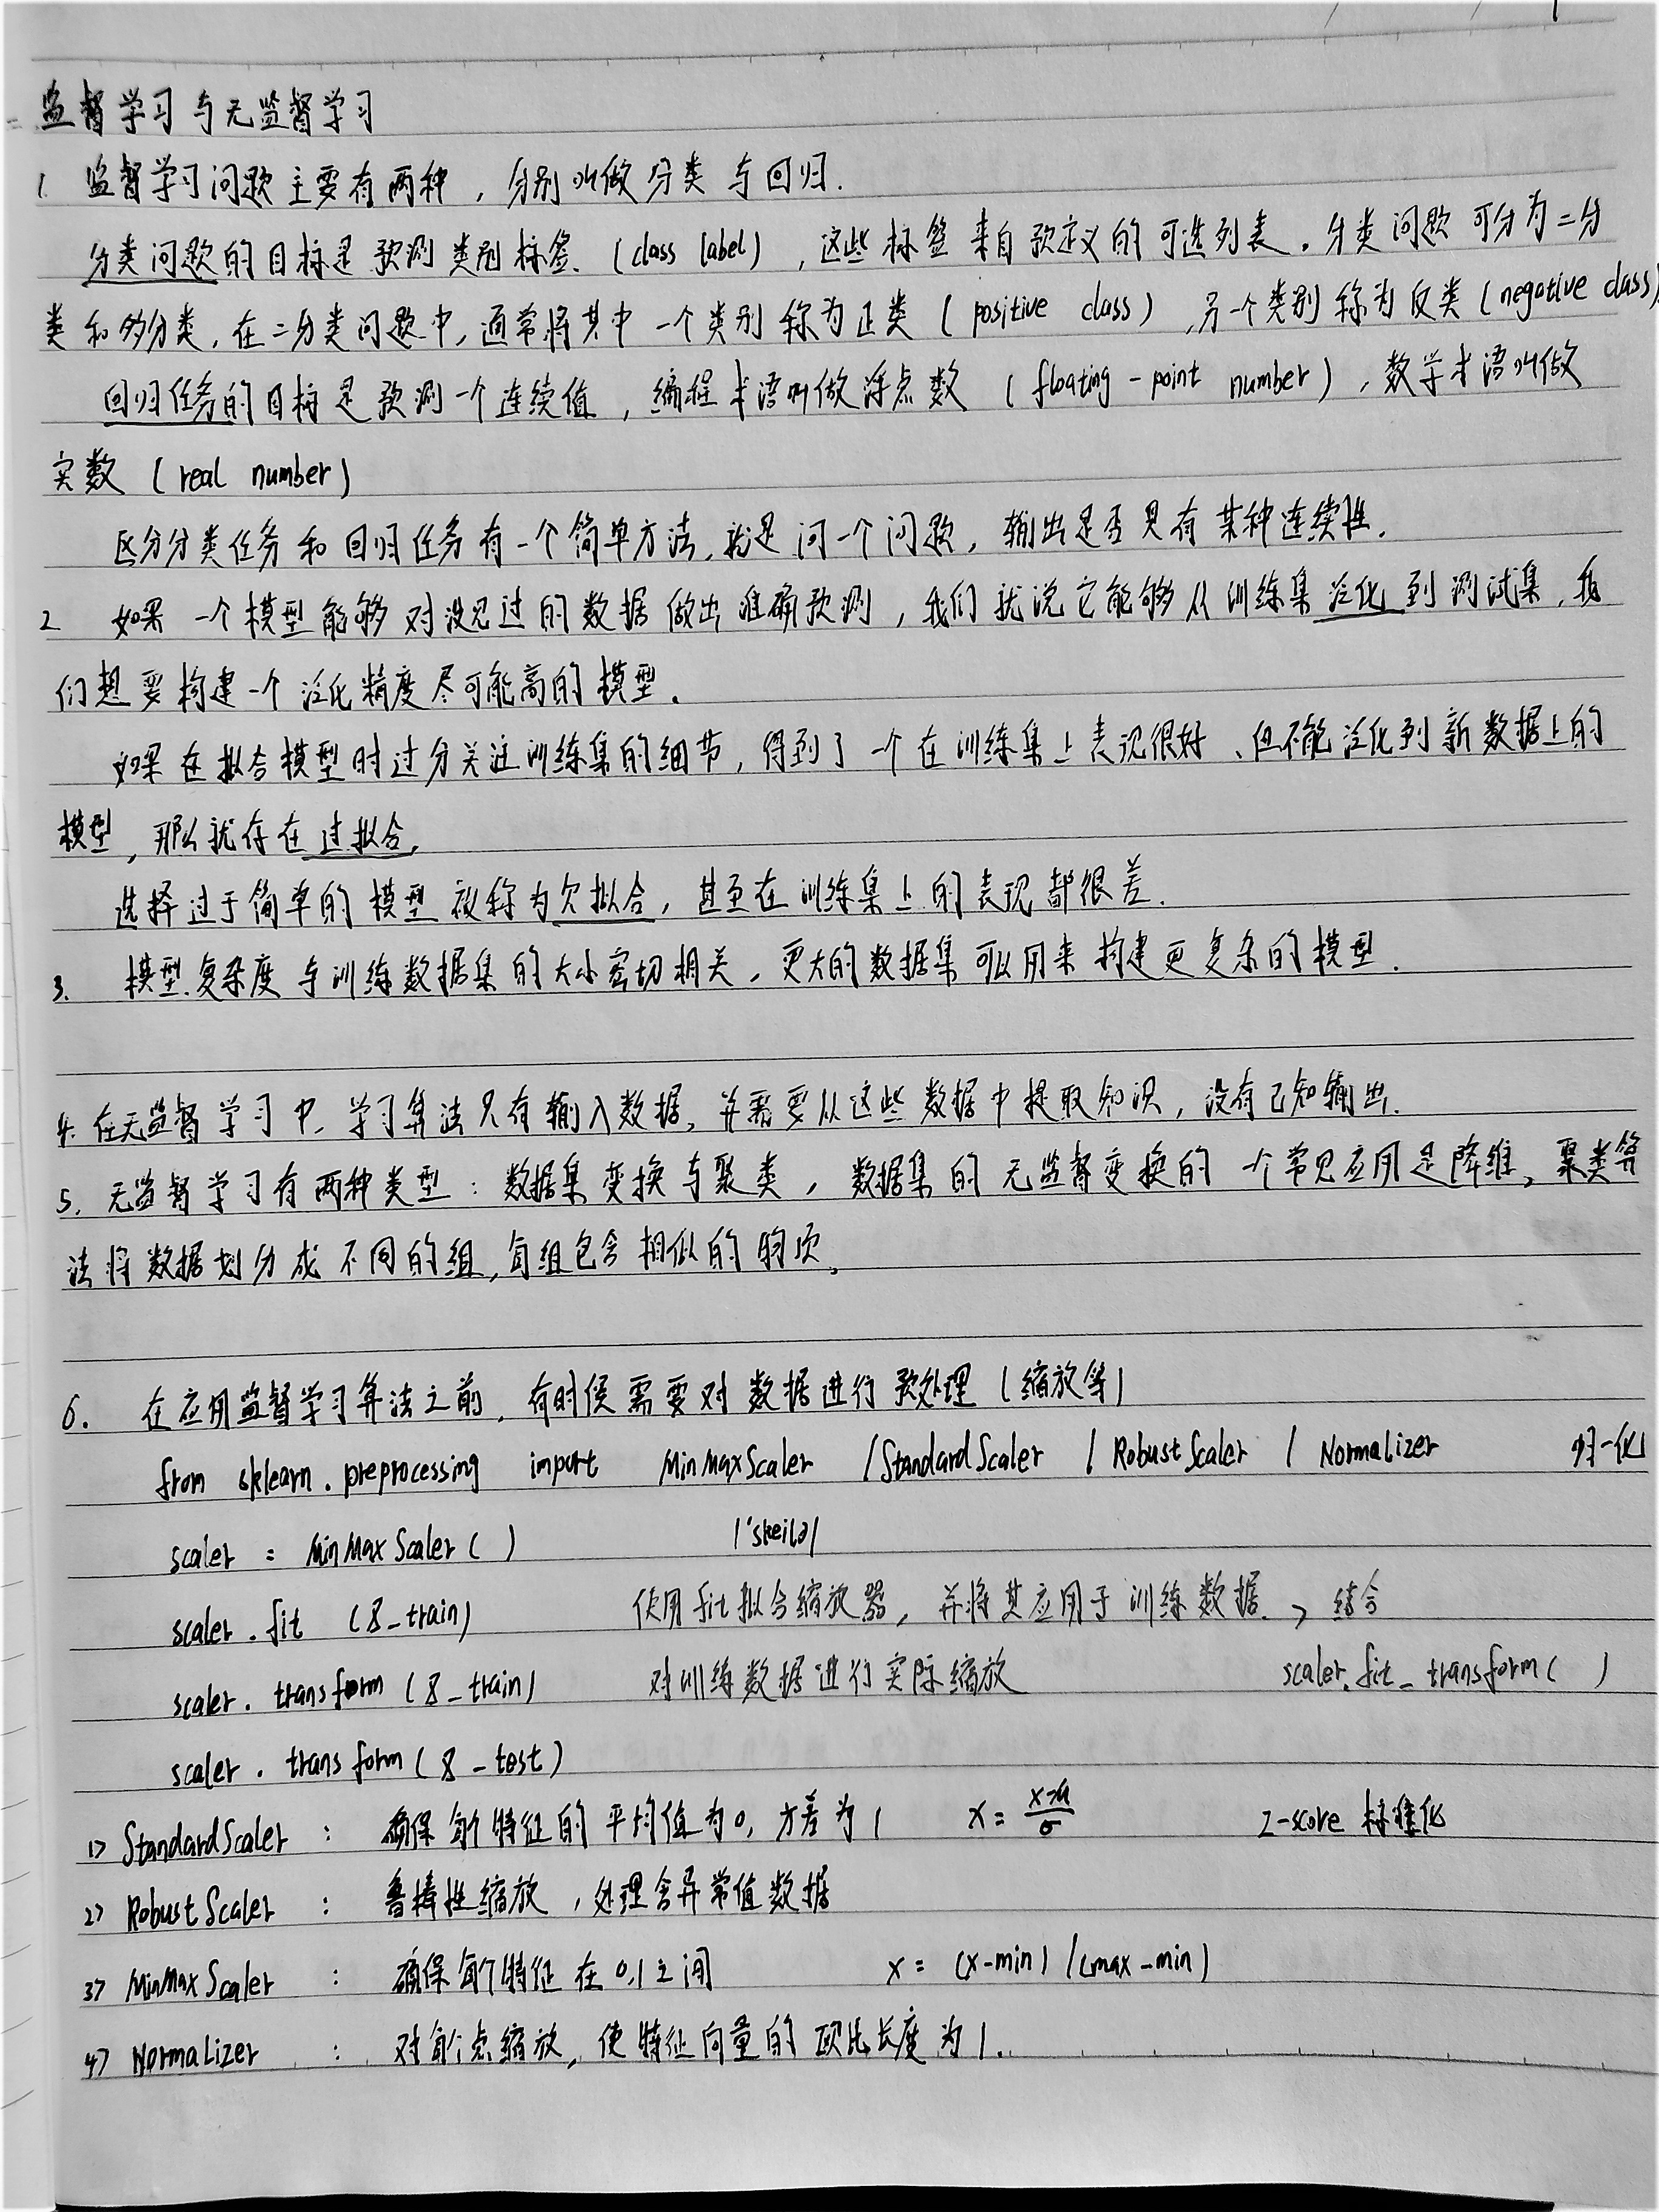 监督学习与无监督学习
1. 监督学习问题主要有两种，分别叫做分类与回归.
分类问题的目标是预测类别标签.(class label)，这些标签来自预定义的可选列表。分类问题可分为二分
类和多分类，在二分类问题中，通常将其中一个类别称为正类(positive class)，另一个类别称为反类(negative class)
回归任务的目标是预测一个连续值，编程术语叫做浮点数(floating-point number)，数学术语叫做
实数(real number)
区分分类任务和回归任务有一个简单方法，就是问一个问题，输出是否具有某种连续性.
2 如果一个模型能够对没见过的数据做出准确预测，我们就说它能够从训练集泛化到测试集，我
们想要构建一个泛化精度尽可能高的模型.
如果在拟合模型时过分关注训练集的细节，得到了一个在训练集上表现很好、但不能泛化到新数据上的
模型，那么就存在过拟合.
选择过于简单的模型被称为欠拟合，甚至在训练集上的表现都很差.
3. 模型复杂度与训练数据集的大小密切相关，更大的数据集可以用来构建更复杂的模型.
4. 在无监督学习中，学习算法只有输入数据，并需要从这些数据中提取知识，没有已知输出.
5. 无监督学习有两种类型：数据集变换与聚类，数据集的无监督变换的一个常见应用是降维，聚类算
法将数据划分成不同的组，每组包含相似的物项。
6. 在应用监督学习算法之前，有时候需要对数据进行预处理(缩放等)
from sklearn.preprocessing import MinMaxScaler /StandardScaler / RobustScaler / Normalizer 归一化
scaler = MinMaxScaler( ) /'skeilə/
scaler.fit (X_train) 使用fit拟合缩放器，并将其应用于训练数据. > 结合
scaler.transform (X_train) 对训练数据进行实际缩放 scaler.fit_transform( )
scaler.transform(X_test)
1> StandardScaler : 确保每个特征的平均值为0，方差为1 x = (x-μ)/σ Z-score 标准化
2> RobustScaler : 鲁棒性缩放，处理含异常值数据
3> MinMaxScaler : 确保每个特征在0,1之间 x = (x-min)/(max-min)
4> Normalizer : 对每个点缩放，使特征向量的欧氏长度为1.